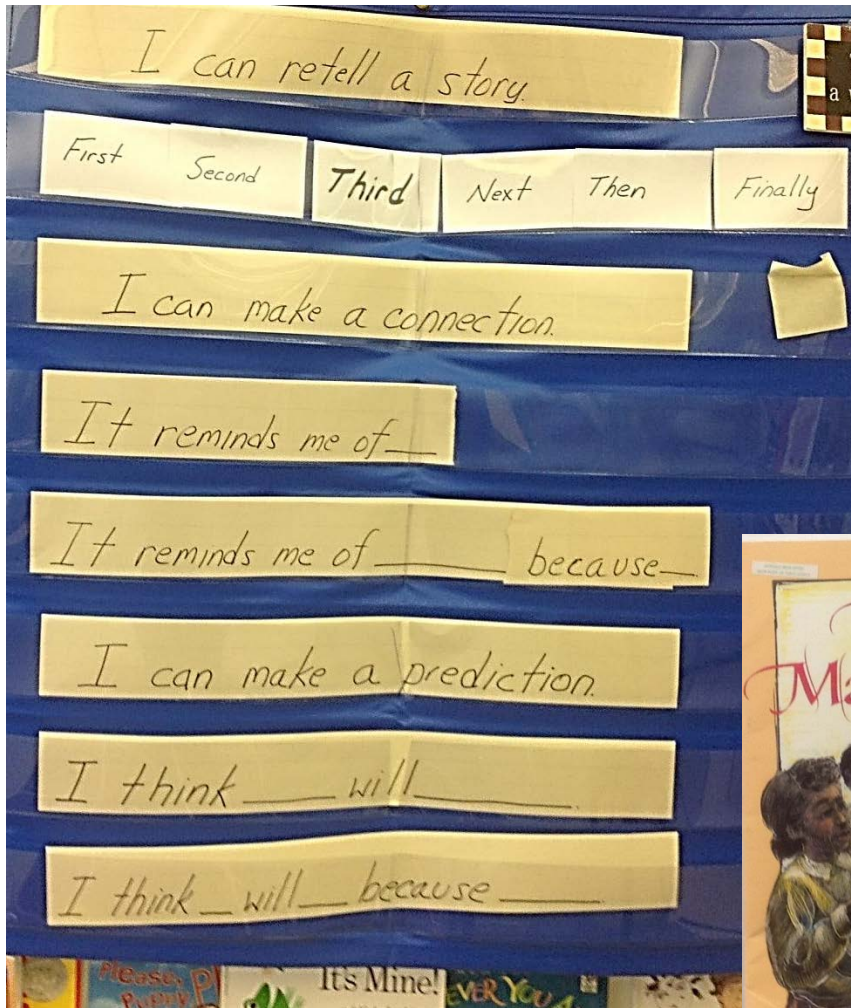 I can retell a story.
First Second Third Next Then Finally
I can make a connection.
It reminds me of __
It reminds me of ______ because__
I can make a prediction.
I think ____ will _______.
I think __ will __ because _____
Please,
Puppy,
It's Mine!
EVER YOU A
a
Ma